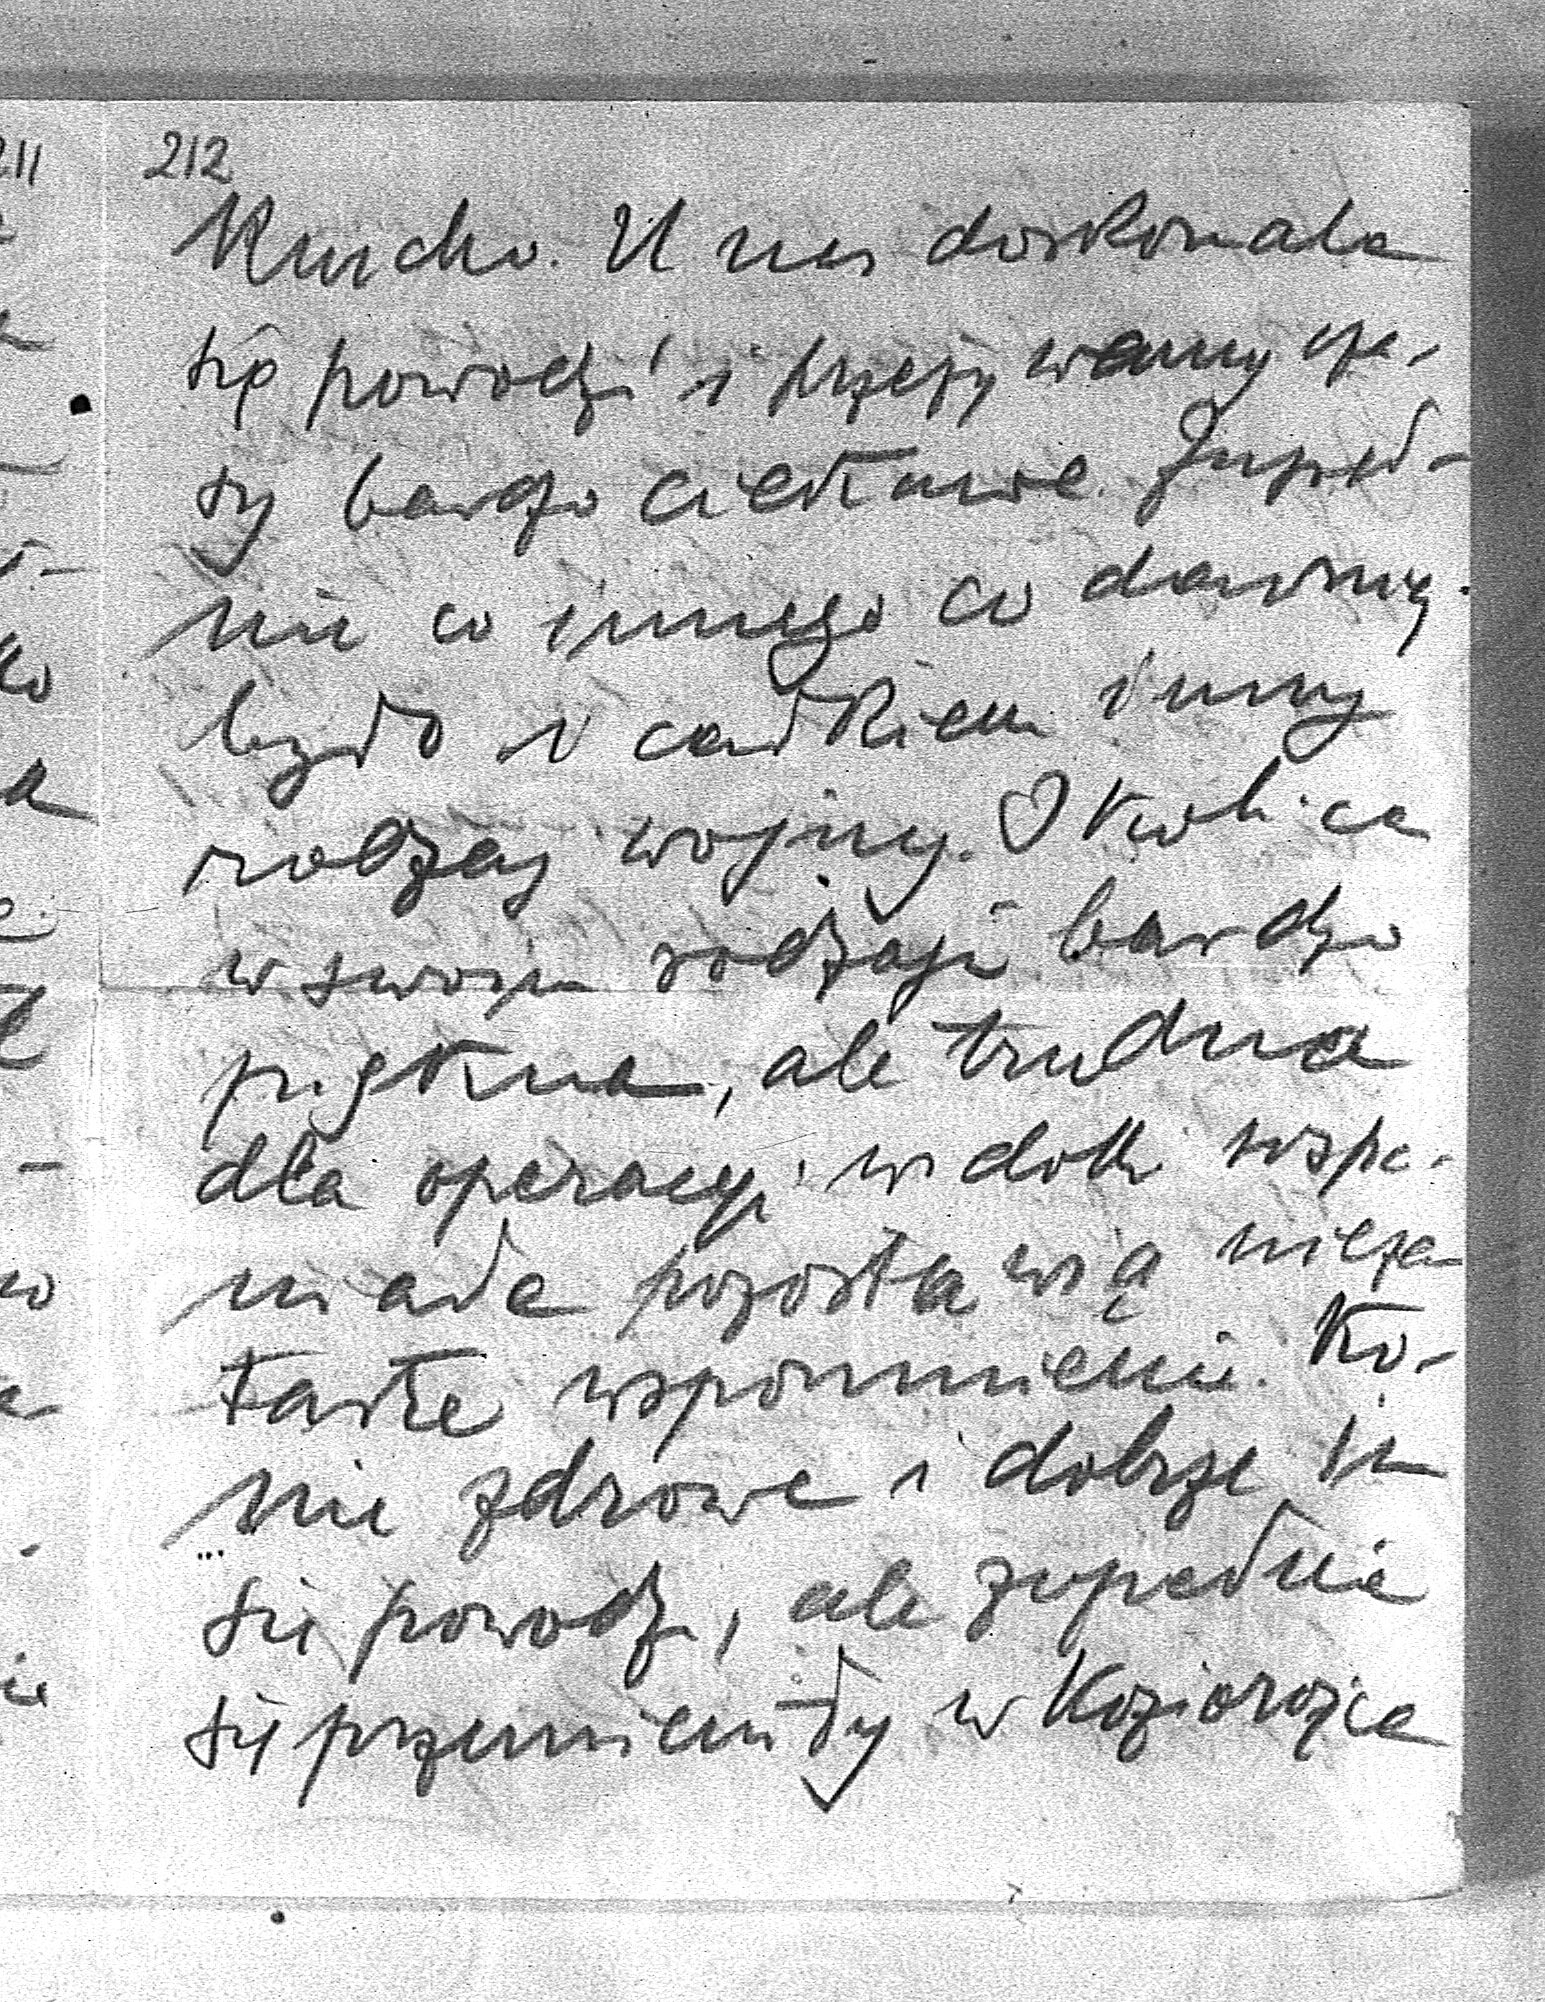 212
krucho. U nas doskonale
się powodzi i przeżywamy cza-
sy bardzo ciekawe. Zupeł-
nie co innego co dawniej
było i całkiem inny
rodzaj wojny. Okolica
w swoim rodzaju bardzo
piękna, ale trudna
dla operacyi widoki wspa-
niałe pozostawią nieza-
tarte wspomnienie. Ko-
nie zdrowe i dobrze im
się powodzi, ale zupełnie
się przemieniły w Koziorożce